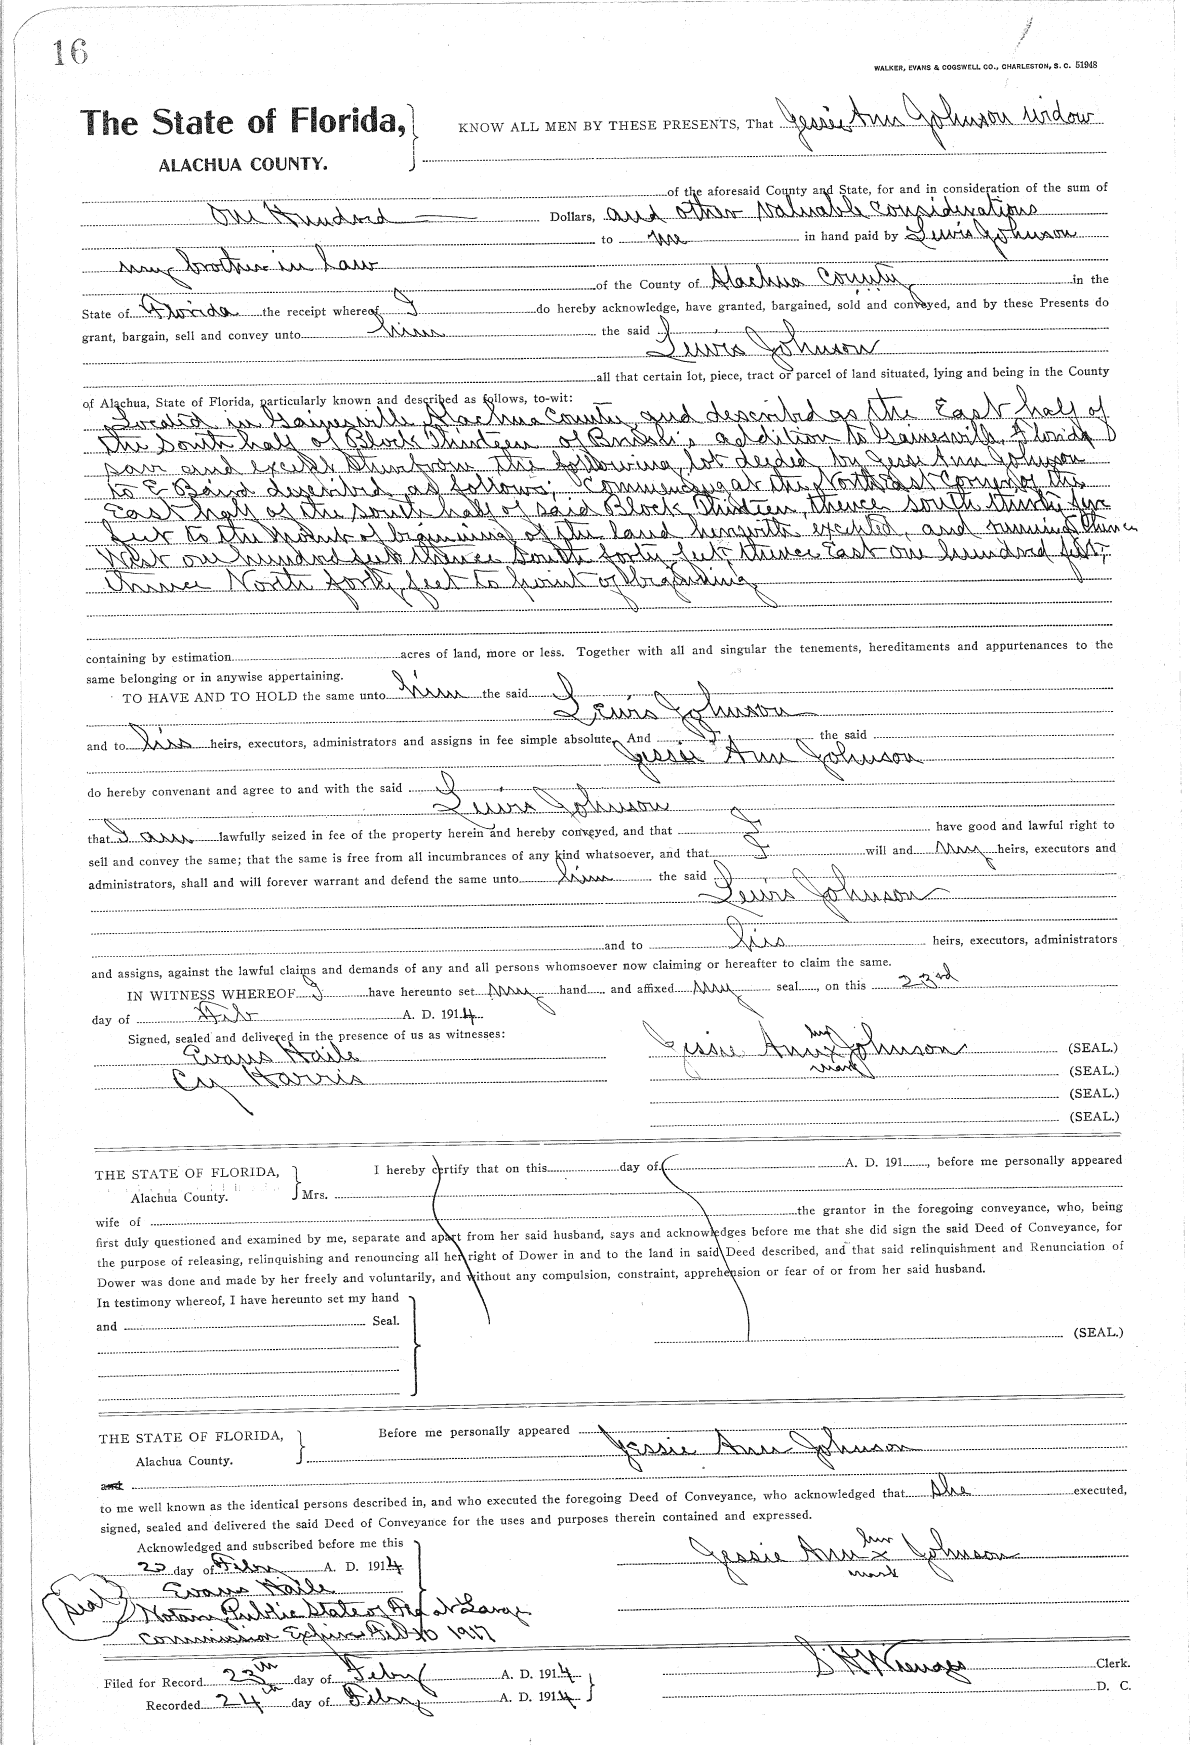 16
WALKER, EVANS & COGSWELL CO., CHARLESTON, S. C. 51948
The State of Florida, KNOW ALL MEN BY THESE PRESENTS, That Jessie Ann Johnson widow
ALACHUA COUNTY.
of the aforesaid County and State, for and in consideration of the sum of
One Hundred Dollars, and other valuable considerations
to me in hand paid by Lewis Johnson
my brother in law
of the County of Alachua County in the
State of Florida the receipt whereof I do hereby acknowledge, have granted, bargained, sold and conveyed, and by these Presents do
grant, bargain, sell and convey unto him the said
Lewis Johnson
all that certain lot, piece, tract or parcel of land situated, lying and being in the County
of Alachua, State of Florida, particularly known and described as follows, to-wit:
Located in Gainesville Alachua County and described as the East half of
the South half of Block Thirteen of Brush's addition to Gainesville, Florida
save and except therefrom the following lot deeded by Jessie Ann Johnson
to E Baird described as follows; Commencing at the North East Corner of the
East half of the South half of said Block Thirteen, thence south thirty five
feet to the point of beginning of the land herewith excepted, and running thence
West one hundred feet thence South forty feet, thence East one hundred feet,
thence North forty feet to point of beginning
containing by estimation acres of land, more or less. Together with all and singular the tenements, hereditaments and appurtenances to the
same belonging or in anywise appertaining.
TO HAVE AND TO HOLD the same unto him the said
Lewis Johnson
and to his heirs, executors, administrators and assigns in fee simple absolute. And I the said
Jessie Ann Johnson
do hereby convenant and agree to and with the said
Lewis Johnson
that I am lawfully seized in fee of the property herein and hereby conveyed, and that I have good and lawful right to
sell and convey the same; that the same is free from all incumbrances of any kind whatsoever, and that I will and my heirs, executors and
administrators, shall and will forever warrant and defend the same unto him the said
Lewis Johnson
and to his heirs, executors, administrators
and assigns, against the lawful claims and demands of any and all persons whomsoever now claiming or hereafter to claim the same.
IN WITNESS WHEREOF I have hereunto set my hand and affixed my seal, on this 23rd
day of Feb A. D. 1914
Signed, sealed and delivered in the presence of us as witnesses:
her
Evans Haile Jessie Ann x Johnson (SEAL.)
mark
Cy Harris (SEAL.)
(SEAL.)
(SEAL.)
THE STATE OF FLORIDA, I hereby certify that on this day of A. D. 191, before me personally appeared
Alachua County. Mrs.
wife of the grantor in the foregoing conveyance, who, being
first duly questioned and examined by me, separate and apart from her said husband, says and acknowledges before me that she did sign the said Deed of Conveyance, for
the purpose of releasing, relinquishing and renouncing all her right of Dower in and to the land in said Deed described, and that said relinquishment and Renunciation of
Dower was done and made by her freely and voluntarily, and without any compulsion, constraint, apprehension or fear of or from her said husband.
In testimony whereof, I have hereunto set my hand
and Seal.
(SEAL.)
THE STATE OF FLORIDA, Before me personally appeared
Jessie Ann Johnson
Alachua County.
and
to me well known as the identical persons described in, and who executed the foregoing Deed of Conveyance, who acknowledged that she executed,
signed, sealed and delivered the said Deed of Conveyance for the uses and purposes therein contained and expressed.
Acknowledged and subscribed before me this
her
23 day of Feby A. D. 1914 Jessie Ann x Johnson
mark
Evans Haile
seal Notary Public State of Fla at Large
Commission Expires Feb 10 1917
Filed for Record 23th day of Feby A. D. 1914 Clerk.
Recorded 24th day of Feby A. D. 1914 D. C.